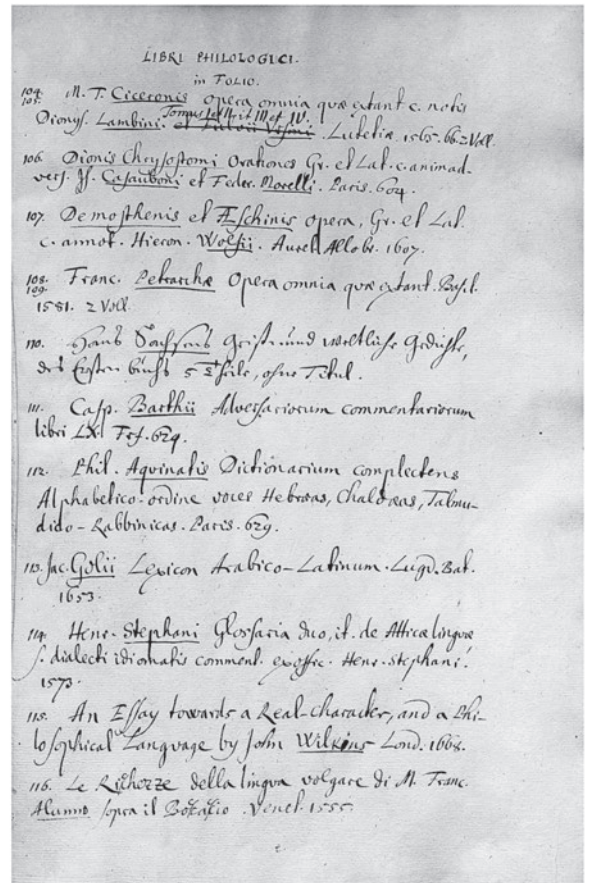 LIBRI PHILOLOGICI.
in FOLIO.
104. M. T. Ciceronis opera omnia quæ extant c. notis
105. Dionys. Lambini. Tomus I et II. it. III et IV. Lutetiæ. 1565. 66. 2 Voll.
106. Dionis Chrysostomi Orationes Gr. et Lat. c. animad-
vers. Is. Casauboni et Feder. Morelli. Paris. 604.
107. Demosthenis et Æschinis opera, Gr. et Lat.
c. annot. Hieron. Wolfii. Aurel. Allobr. 1607.
108. Franc. Petrarchæ Opera omnia quæ extant. Basil.
109. 1581. 2 Voll.
110. Hans Sachsens Geist- und weltliche Gedichte,
des Ersten buchs 5 Theile, ohne Titul.
111. Casp. Barthii Adversariorum commentariorum
libri LX. Frf. 624.
112. Phil. Aquinatis Dictionarium complectens
Alphabetico-ordine voces Hebræas, Chaldæas, Talmu-
dido-Rabbinicas. Paris. 629.
113. Jac. Golii Lexicon Arabico-Latinum. Lugd. Bat.
1653.
114. Henr. Stephani Glossaria duo, it. de Atticæ linguæ
s. dialecti idiomatis comment. ex offic. Henr. Stephani.
1573.
115. An Essay towards a Real-character, and a Phi-
losophical Language by John Wilkins Lond. 1668.
116. Le Richezze della lingua volgare di M. Franc.
Alunno sopra il Boccacio. Venet. 1555.